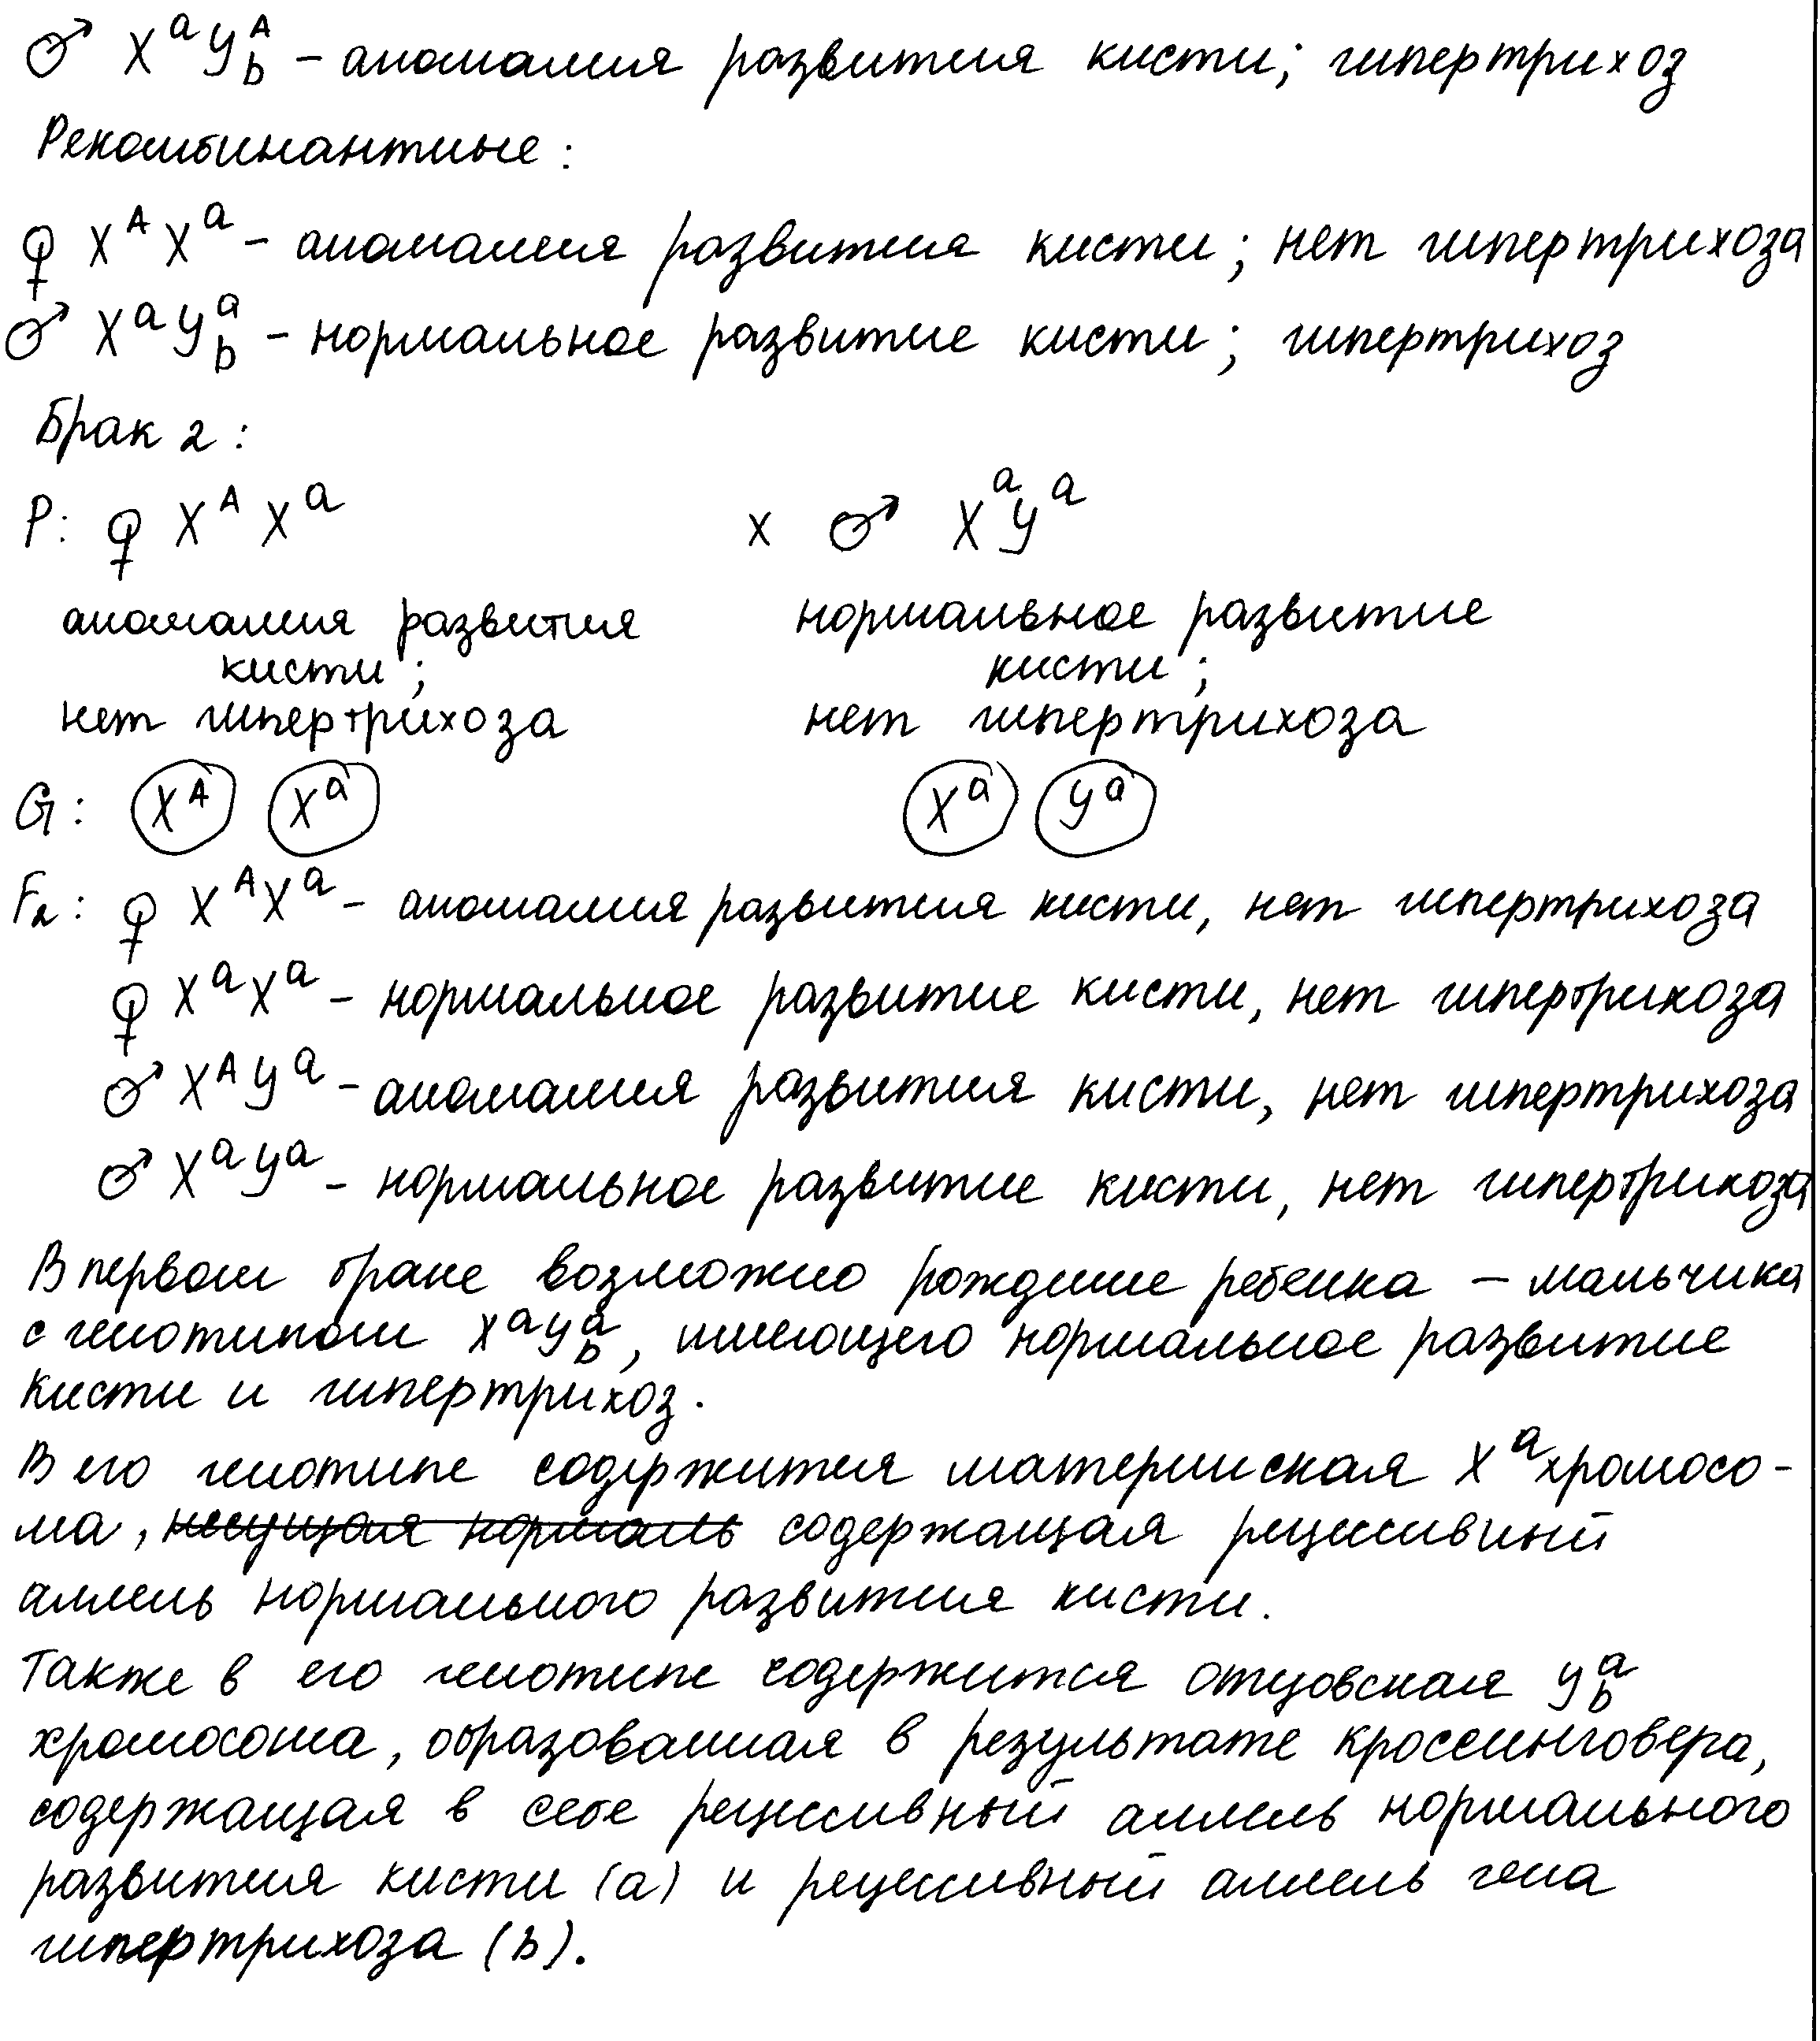 ♂ XᵃYᴬb – аномалия развития кисти; гипертрихоз
Рекомбинантные:
♀ XᴬXᵃ – аномалия развития кисти; нет гипертрихоза
♂ XᵃYᵃb – нормальное развитие кисти; гипертрихоз
Брак 2:
P: ♀ XᴬXᵃ x ♂ XᵃYᵃ
аномалия развития нормальное развитие
кисти; кисти;
нет гипертрихоза нет гипертрихоза
G: Xᴬ Xᵃ Xᵃ Yᵃ
F₂: ♀ XᴬXᵃ – аномалия развития кисти, нет гипертрихоза
♀ XᵃXᵃ – нормальное развитие кисти, нет гипертрихоза
♂ XᴬYᵃ – аномалия развития кисти, нет гипертрихоза
♂ XᵃYᵃ – нормальное развитие кисти, нет гипертрихоза
В первом браке возможно рождение ребенка – мальчика
с генотипом XᵃYᵃb, имеющего нормальное развитие
кисти и гипертрихоз.
В его генотипе содержится материнская Xᵃ хромосо-
ма, несущая нормаль содержащая рецессивный
аллель нормального развития кисти.
Также в его генотипе содержится отцовская Yᵃb
хромосома, образованная в результате кроссинговера,
содержащая в себе рецессивный аллель нормального
развития кисти (a) и рецессивный аллель гена
гипертрихоза (b).